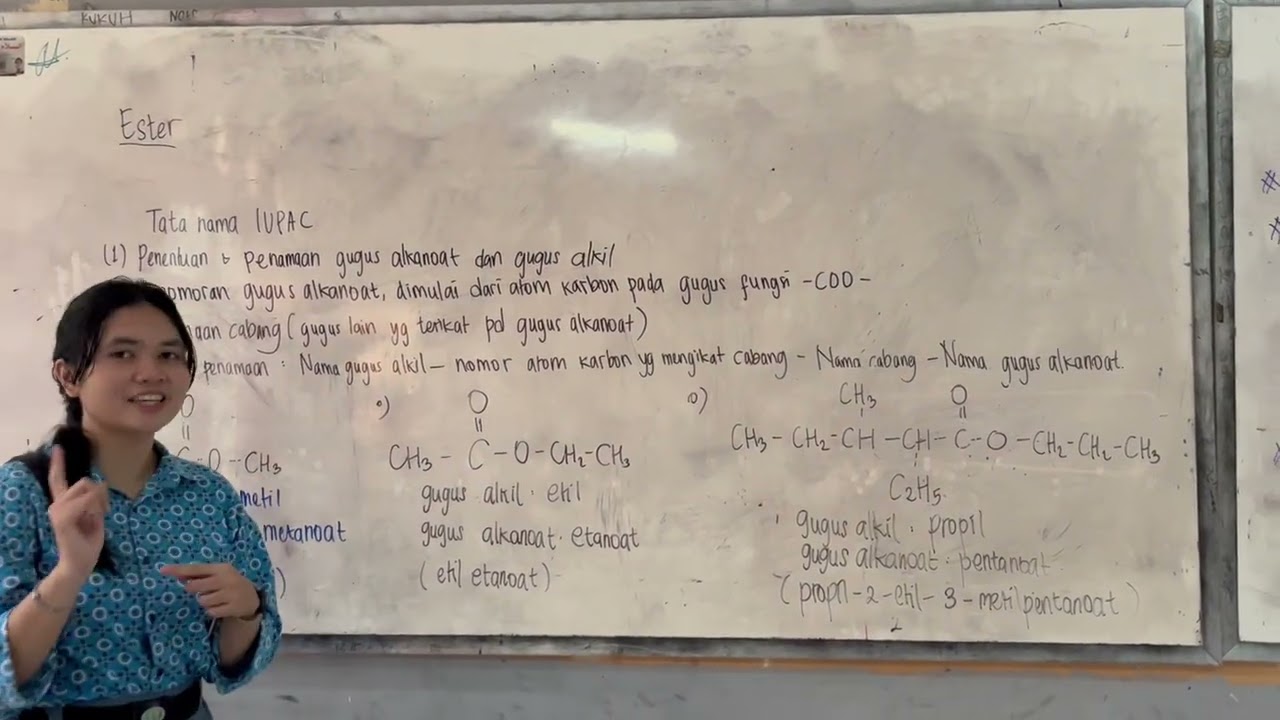 KUKUH
Ester
Tata nama IUPAC
(1) Penentuan & penamaan gugus alkanoat dan gugus alkil
omoran gugus alkanoat, dimulai dari atom karbon pada gugus fungsi -COO-
aan cabang (gugus lain yg terikat pd gugus alkanoat)
penamaan : Nama gugus alkil - nomor atom karbon yg mengikat cabang - Nama cabang - Nama gugus alkanoat.
O
C - O - CH3
metil
metanoat
)
o) O
CH3 - C - O - CH2 - CH3
gugus alkil : etil
gugus alkanoat : etanoat
(etil etanoat)
o) CH3 O
CH3 - CH2 - CH - CH - C - O - CH2 - CH2 - CH3
C2H5
gugus alkil : propil
gugus alkanoat : pentanoat
(propil - 2 - etil - 3 - metilpentanoat)